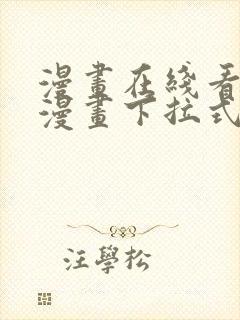 漫畫在綫看
漫畫下拉式
汪學松